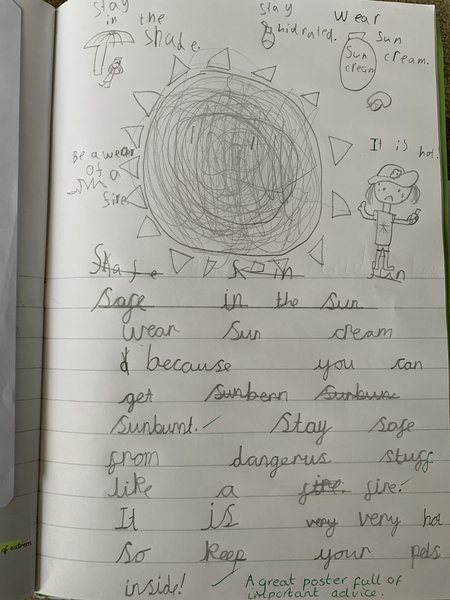 Stay
in the
shade.
Stay
hidrated.
Wear
Sun
cream.
Sun
cream
It is hot!
Be a wear
of a
fire
Safe in the Sun
Wear Sun cream
because you can
get Sunbern Sunbun
Sunburnt. Stay safe
from dangerus stuff
like a fire. fire.
It is very very hot
So keep your pets
inside!
A great poster full of
important advice.
of extrem